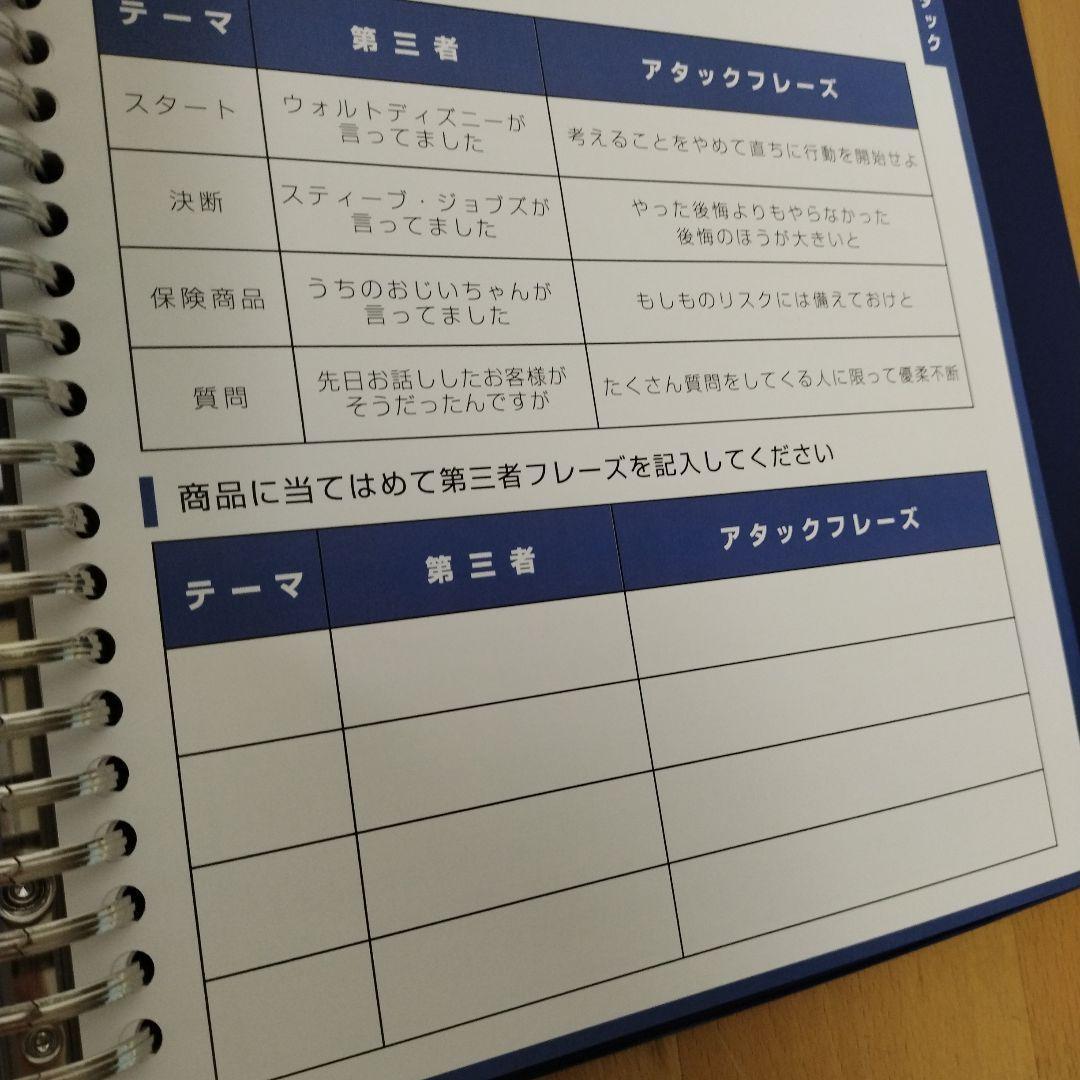 タック
テーマ 第三者 アタックフレーズ
スタート
ウォルトディズニーが
言ってました
考えることをやめて直ちに行動を開始せよ
決断
スティーブ・ジョブズが
言ってました
やった後悔よりもやらなかった
後悔のほうが大きいと
保険商品
うちのおじいちゃんが
言ってました
もしものリスクには備えておけと
質問
先日お話ししたお客様が
そうだったんですが
たくさん質問をしてくる人に限って優柔不断
商品に当てはめて第三者フレーズを記入してください
テーマ 第三者 アタックフレーズ